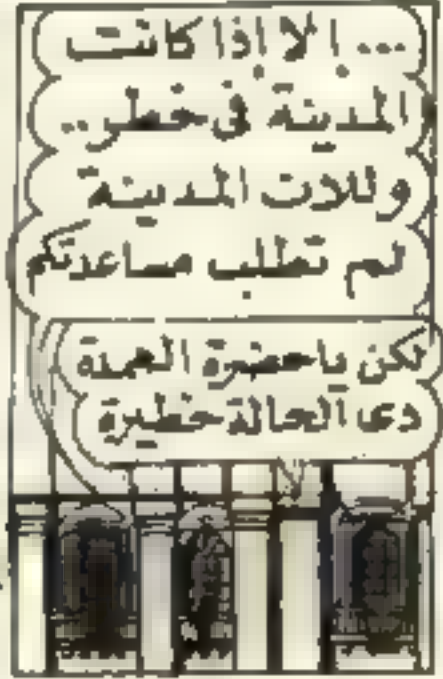 ... إلا إذا كانت
المدينة فى خطر..
وللآن المدينة
لم تطلب مساعدتكم
لكن ياحضرة العمدة
دى الحالة خطيرة